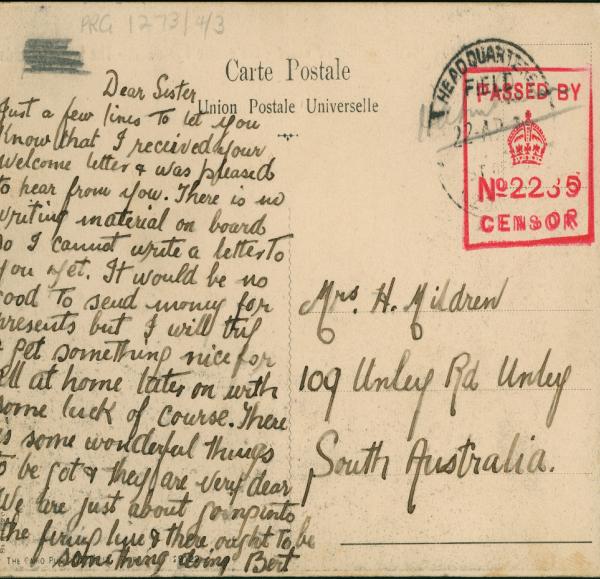 PRG 1273/4/3
Carte Postale
Union Postale Universelle
HEADQUARTERS
FIELD
22 AP
PASSED BY
No 2235
CENSOR
Dear Sister
Just a few lines to let you
know that I received your
welcome letter & was pleased
to hear from you. There is no
writing material on board
so I cannot write a letter to
you yet. It would be no
good to send money for
presents but I will try
& get something nice for
all at home later on with
some luck of course. There
is some wonderful things
to be got & they are very dear
We are just about going into
the firing line & there ought to be
something doing Bert
Mrs. H. Mildren
109 Unley Rd Unley
South Australia.
THE CAIRO